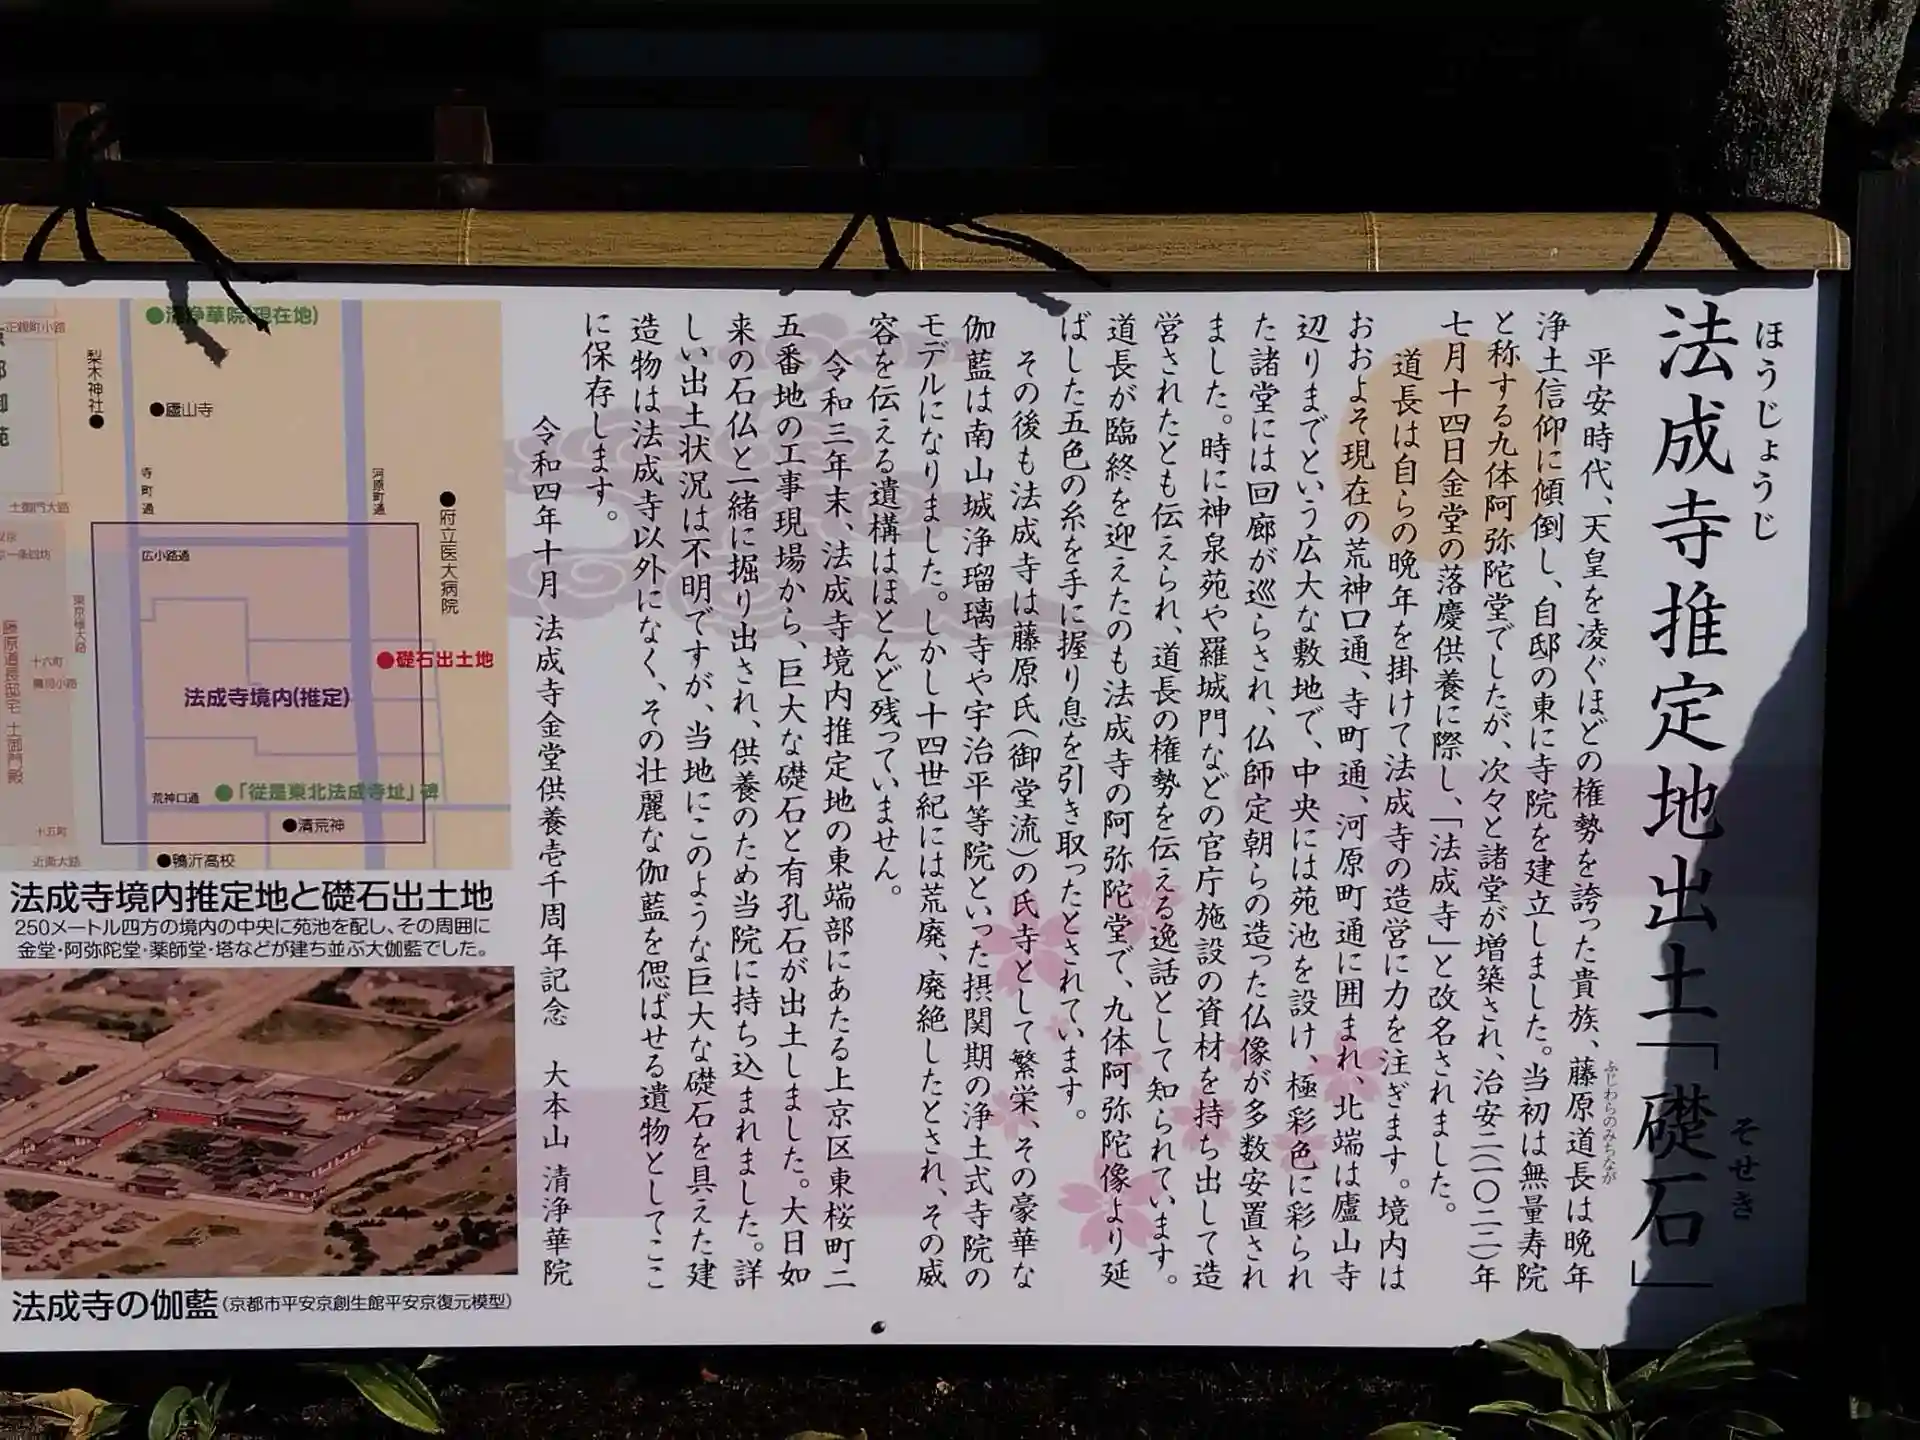 ほうじょうじ
法成寺推定地出土「礎石」
そせき
平安時代、天皇を凌ぐほどの権勢を誇った貴族、藤原道長は晩年
ふじわらのみちなが
浄土信仰に傾倒し、自邸の東に寺院を建立しました。当初は無量寿院
と称する九体阿弥陀堂でしたが、次々と諸堂が増築され、治安二(一〇二二)年
七月十四日金堂の落慶供養に際し、「法成寺」と改名されました。
道長は自らの晩年を掛けて法成寺の造営に力を注ぎます。境内は
おおよそ現在の荒神口通、寺町通、河原町通に囲まれ、北端は廬山寺
辺りまでという広大な敷地で、中央には苑池を設け、極彩色に彩られ
た諸堂には回廊が巡らされ、仏師定朝らの造った仏像が多数安置され
ました。時に神泉苑や羅城門などの官庁施設の資材を持ち出して造
営されたとも伝えられ、道長の権勢を伝える逸話として知られています。
道長が臨終を迎えたのも法成寺の阿弥陀堂で、九体阿弥陀像より延
ばした五色の糸を手に握り息を引き取ったとされています。
その後も法成寺は藤原氏(御堂流)の氏寺として繁栄、その豪華な
伽藍は南山城浄瑠璃寺や宇治平等院といった摂関期の浄土式寺院の
モデルになりました。しかし十四世紀には荒廃、廃絶したとされ、その威
容を伝える遺構はほとんど残っていません。
令和三年末、法成寺境内推定地の東端部にあたる上京区東桜町二
五番地の工事現場から、巨大な礎石と有孔石が出土しました。大日如
来の石仏と一緒に掘り出され、供養のため当院に持ち込まれました。詳
しい出土状況は不明ですが、当地にこのような巨大な礎石を具えた建
造物は法成寺以外になく、その壮麗な伽藍を偲ばせる遺物としてここ
に保存します。
令和四年十月 法成寺金堂供養壱千周年記念 大本山 清浄華院
●清浄華院(現在地)
正親町小路
梨木神社●
●廬山寺
寺町通
河原町通
●府立医大病院
土御門大路
広小路通
東京極大路
藤原道長邸宅 土御門殿
十六町
鷹司小路
●礎石出土地
法成寺境内(推定)
荒神口通
●「従是東北法成寺址」碑
●清荒神
十五町
近衛大路
●鴨沂高校
法成寺境内推定地と礎石出土地
250メートル四方の境内の中央に苑池を配し、その周囲に
金堂・阿弥陀堂・薬師堂・塔などが建ち並ぶ大伽藍でした。
法成寺の伽藍(京都市平安京創生館平安京復元模型)